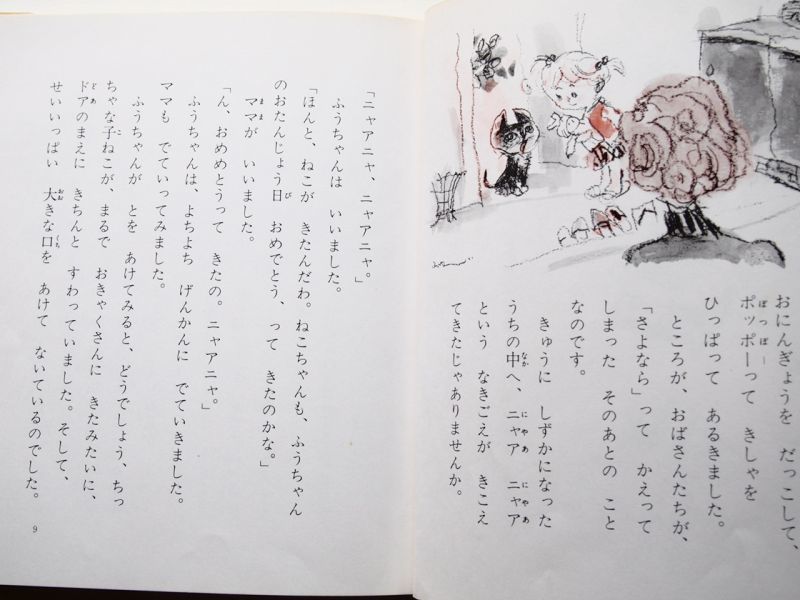 おにんぎょうを だっこして、
ポッポーって きしゃを
ひっぱって あるきました。
ところが、おばさんたちが、
「さよなら」って かえって
しまった そのあとの こと
なのです。
きゅうに しずかになった
うちの中へ、ニャア ニャア
という なきごえが きこえ
てきたじゃありませんか。
「ニャアニャ、ニャアニャ。」
ふうちゃんは いいました。
「ほんと、ねこが きたんだわ。ねこちゃんも、ふうちゃん
のおたんじょう日 おめでとう、って きたのかな。」
ママが いいました。
「ん、おめめとうって きたの。ニャアニャ。」
ふうちゃんは、よちよち げんかんに でていきました。
ママも でていってみました。
ふうちゃんが とを あけてみると、どうでしょう、ちっ
ちゃな子ねこが、まるで おきゃくさんに きたみたいに、
ドアのまえに きちんと すわっていました。そして、
せいいっぱい 大きな口を あけて ないているのでした。
9